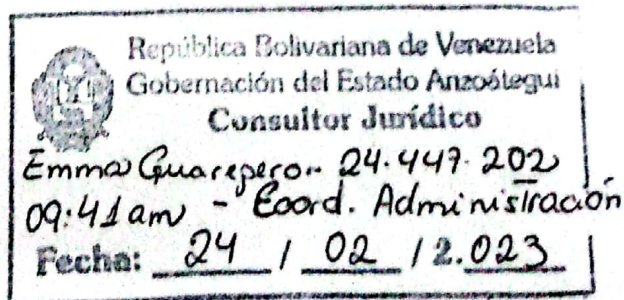 República Bolivariana de Venezuela
Gobernación del Estado Anzoátegui
Consultor Jurídico
Emma Guarepero.. 24.447.202
09:41am - Coord. Administración
Fecha: 24 / 02 / 2.023